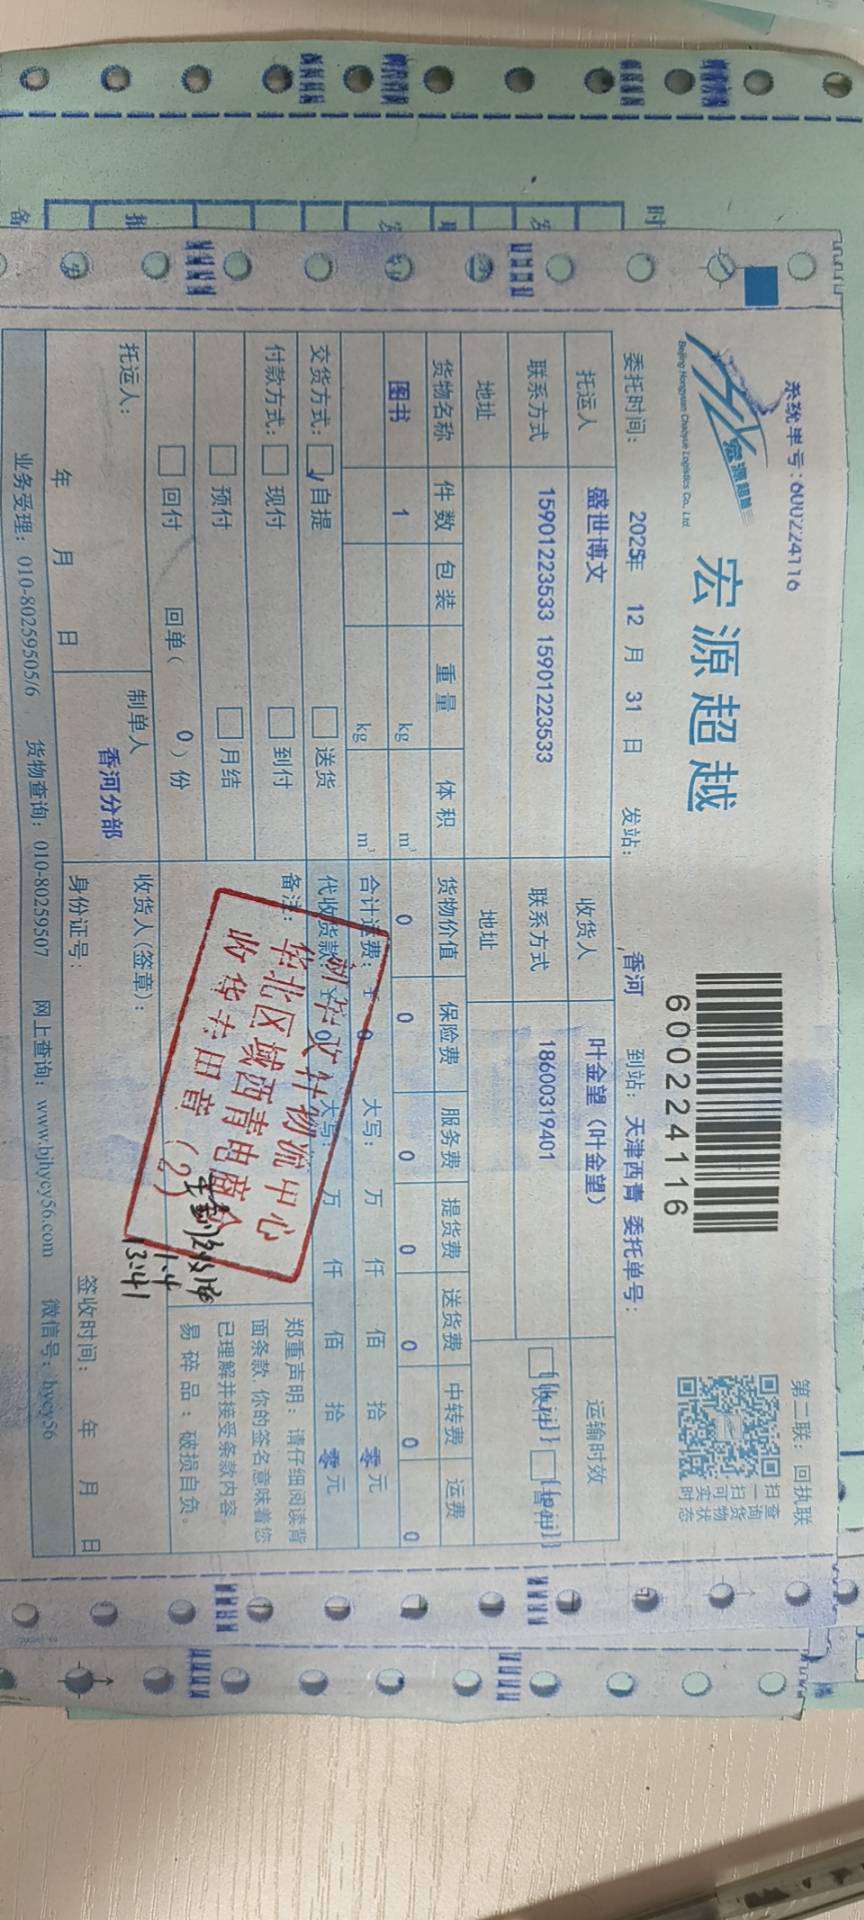 系统单号:600224116
第二联：回执联
宏源超越
Beijing Hongyuan Chaoyue Logistics Co., Ltd
宏源超越
600224116
扫一扫可实时
查询货物状态
委托时间： 2025年 12 月 31 日 发站： 香河 到站：天津西青 委托单号：
托运人 盛世博文 收货人 叶金望（叶金望） 运输时效
联系方式 15901223533 15901223533 联系方式 18600319401
地址 地址
货物名称 件数 包装 重量 体积 货物价值 保险费 服务费 提货费 送货费 中转费 运费
图书 1 kg m³ 0 0 0 0 0 0 0
kg m³ 合计运费： 0 大写： 万 仟 佰 拾 零元
交货方式： 自提 送货 代收货款： 0 大写： 万 仟 佰 拾 零元
付款方式： 现付 到付 备注：
预付 月结
回付 回单（ 0 ）份
郑重声明：请仔细阅读背
面条款，你的签名意味着您
已理解并接受条款内容。
易碎品：破损自负。
物流中心
华北区域西青电商仓
收货专用章（2）
1.4
13:41
托运人： 制单人 收货人(签章)：
香河分部
年 月 日 身份证号： 签收时间： 年 月 日
业务受理：010-80259505/6 货物查询：010-80259507 网上查询：www.bjhycy56.com 微信号：hycy56